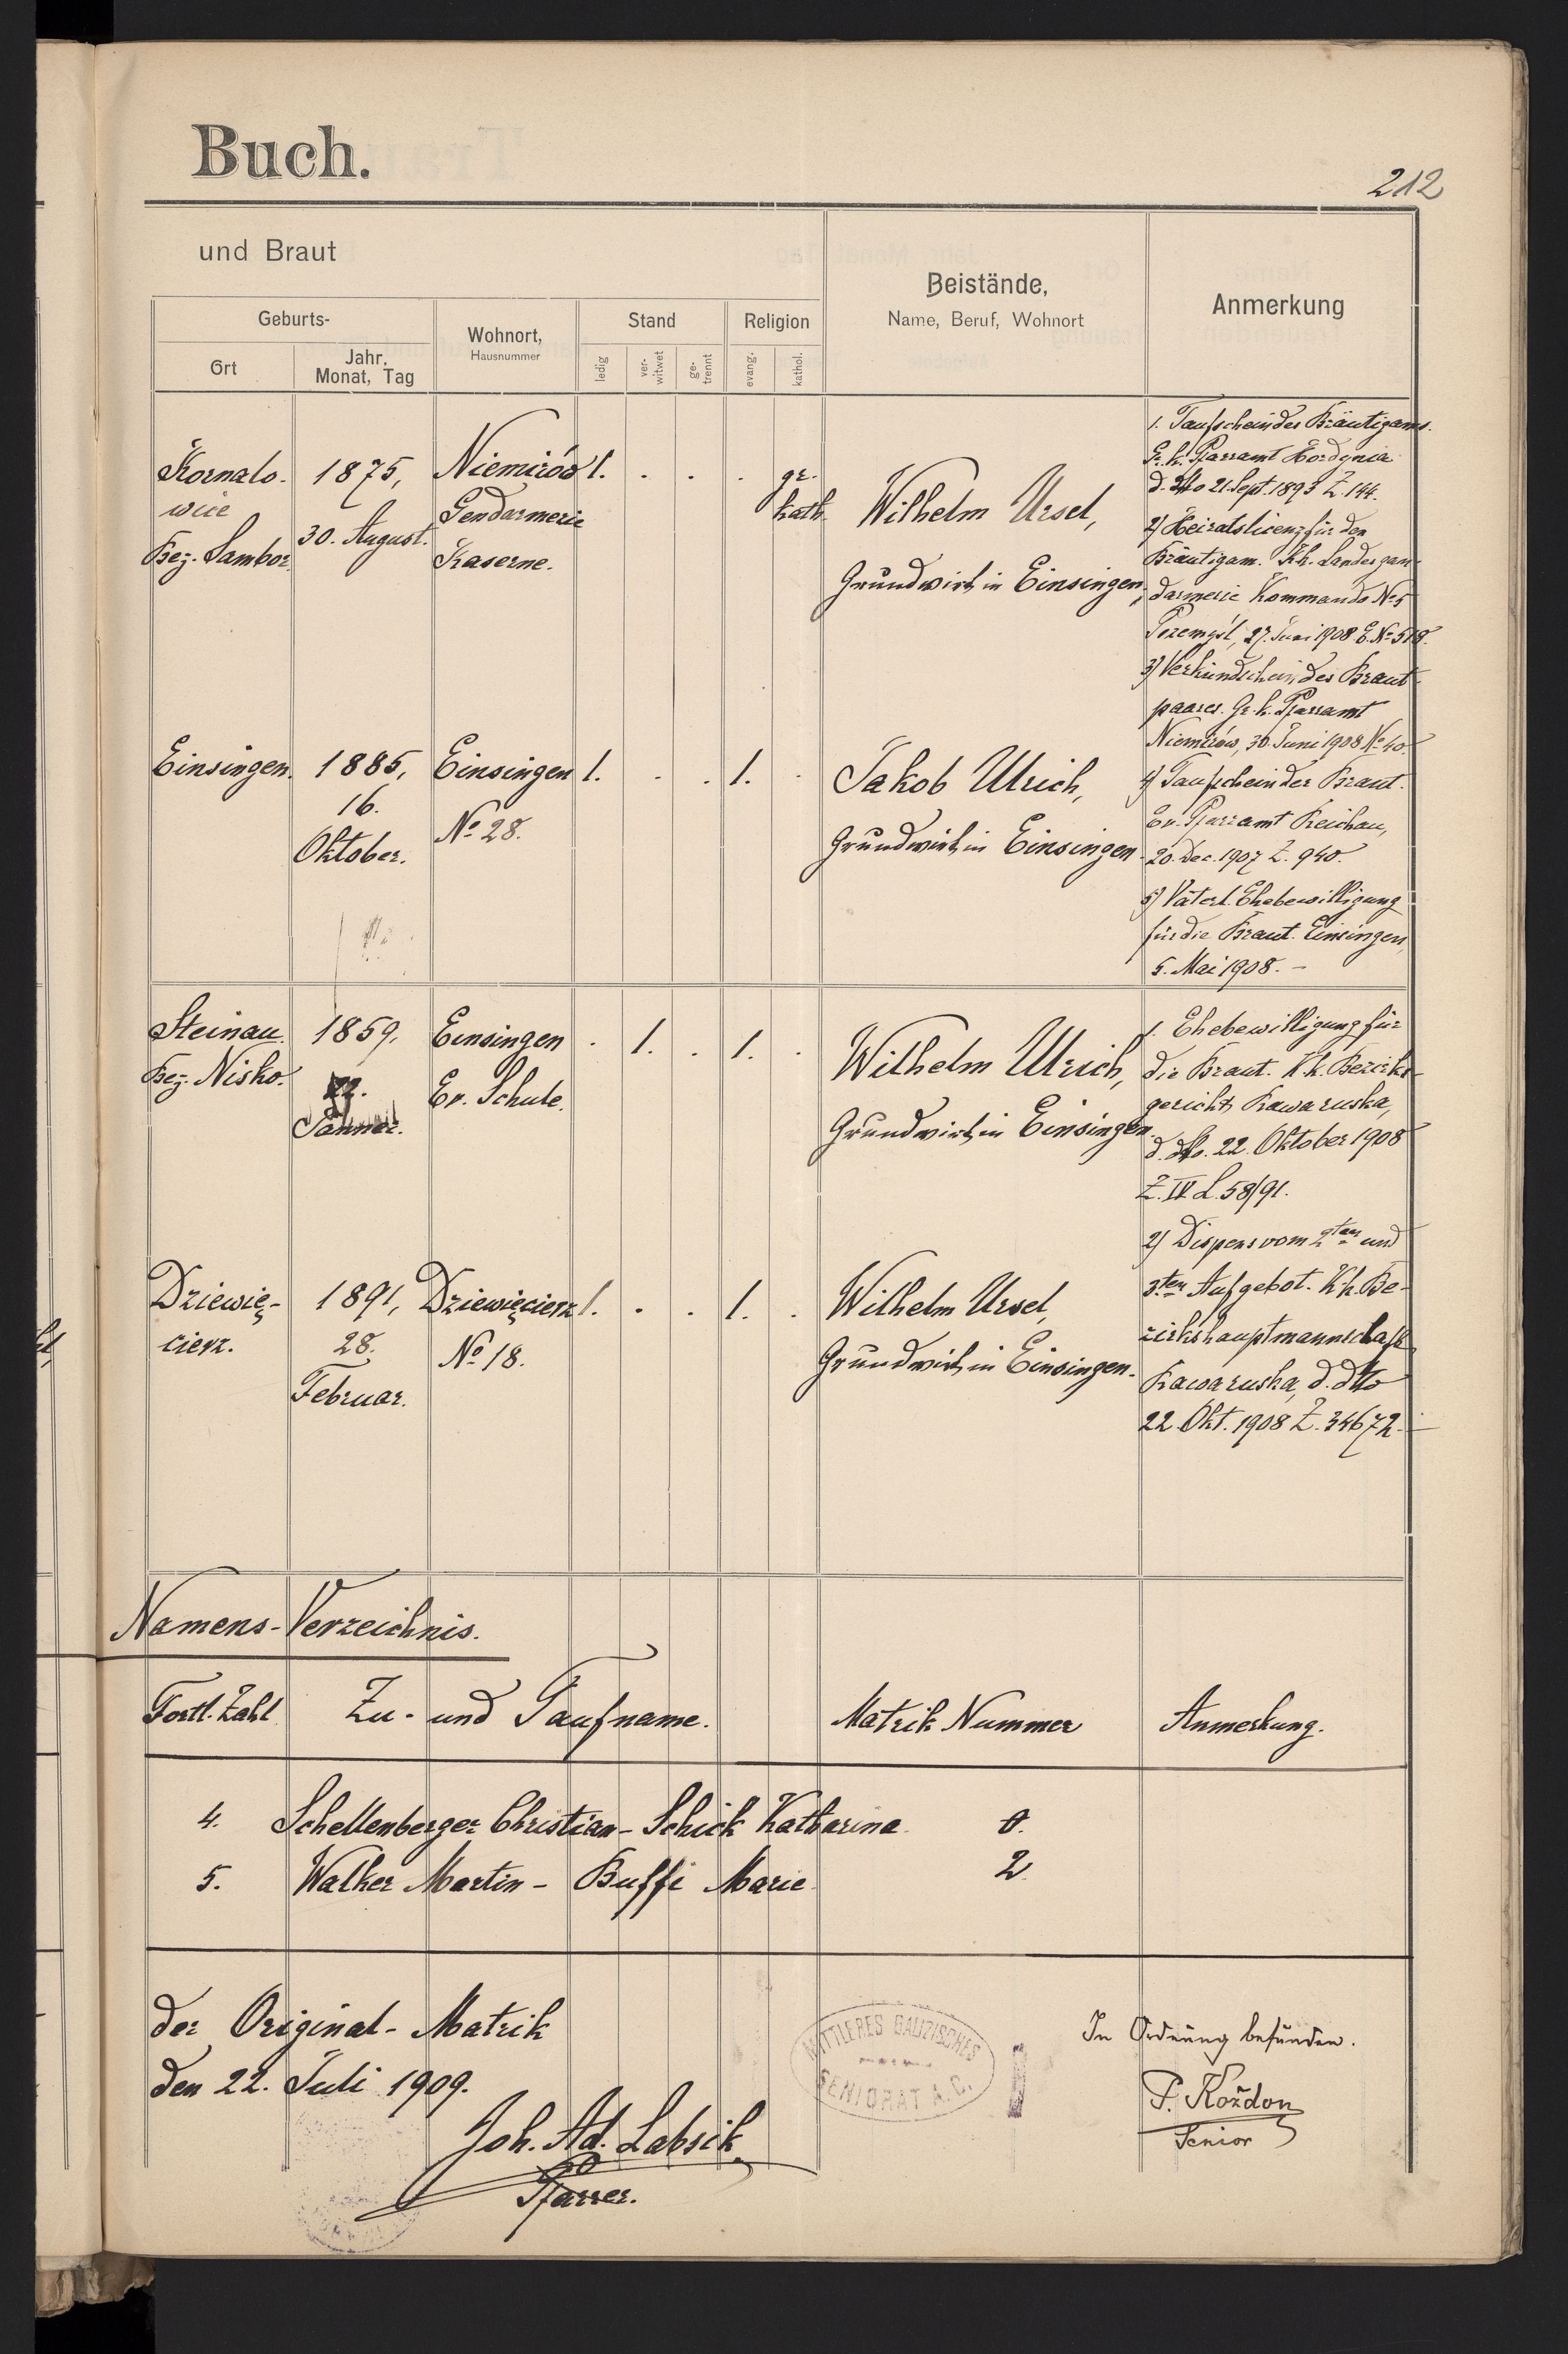 Buch.
212
und Braut
Geburts-
Ort
Jahr, Monat, Tag
Wohnort,
Hausnummer
Stand
ledig
ver-witwet
ge-trennt
Religion
evang.
kathol.
Beistände,
Name, Beruf, Wohnort
Anmerkung
Kornalo-
wice
Bez. Sambor.
1875,
30. August.
Niemirów
Gendarmerie
Kaserne.
1. . . .
gr.
kath.
Wilhelm Ursel,
Grundwirt in Einsingen,
1. Taufschein des Bräutigams.
Gr. k. Pfarramt Hordynia
d. dto 21. Sept. 1893 Z. 144.
2) Heiratslicenz für den
Bräutigam. K.k. Landesgen-
darmerie Kommando No 5
Przemyśl, 27. Juni 1908 E. No 518.
3) Verkündschein des Braut-
paares. Gr. k. Pfarramt
Niemirów, 30. Juni 1908 No 40.
4) Taufschein der Braut.
Ev. Pfarramt Reichau,
20. Dec. 1907 Z. 940.
5) Väterl. Ehebewilligung
für die Braut. Einsingen,
5. Mai 1908. -
Einsingen.
1885,
16.
Oktober.
Einsingen
No 28.
1. . . 1. .
Jakob Ulrich,
Grundwirt in Einsingen.
Steinau.
Bez. Nisko.
1859.
Jänner.
Einsingen
Ev. Schule.
. 1. . 1. .
Wilhelm Ulrich,
Grundwirt in Einsingen.
1. Ehebewilligung für
die Braut. K.k. Bezirks-
gericht Rawaruska,
d. dto. 22. Oktober 1908
Z. IV L. 58/91.
2) Dispens vom 2ten und
3ten Aufgebot. K.k. Be-
zirkshauptmannschaft
Rawaruska, d. dto
22. Okt. 1908 Z. 34672.
Dziewię-
cierz.
1891,
28.
Februar.
Dziewięcierz
No 18.
1. . . 1. .
Wilhelm Ursel,
Grundwirt in Einsingen.
Namens-Verzeichnis.
Fortl. Zahl Zu- und Taufname. Matrik Nummer Anmerkung.
4. Schellenberger Christian - Schick Katharina
5. Walker Martin - Buffi Marie 2
der Original-Matrik
den 22. Juli 1909.
Joh. Ad. Labsik
Pfarrer.
MITTLERES GALIZISCHES
SENIORAT A.C.
In Ordnung befunden.
P. Koždon
Senior